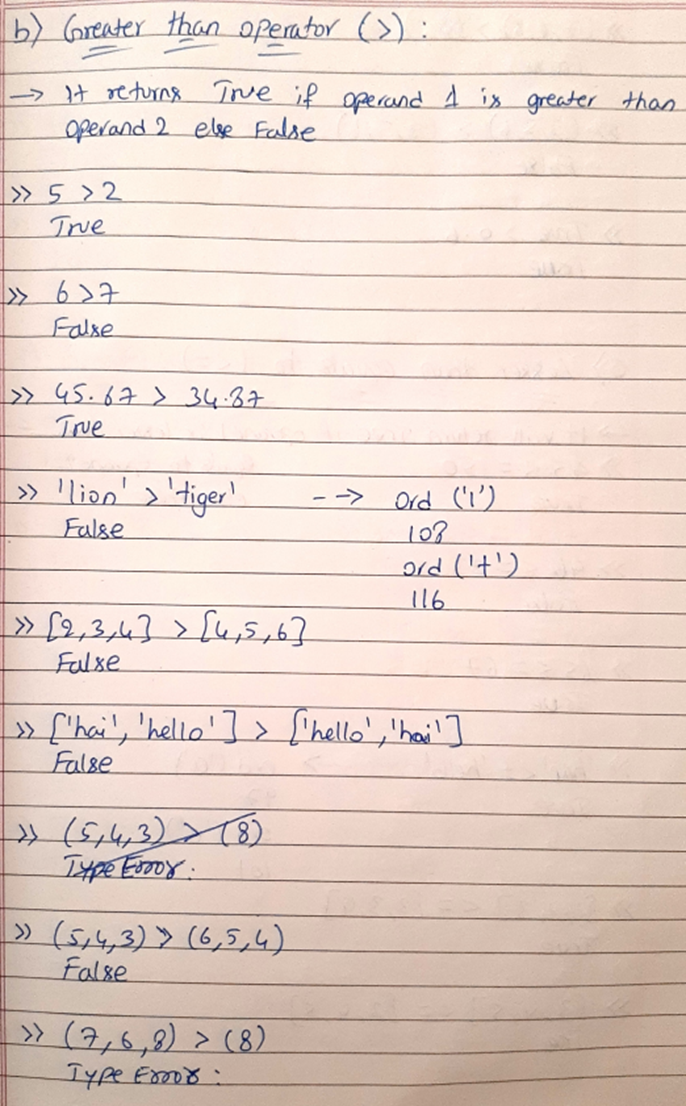 b) Greater than operator (>) :
→ It returns True if operand 1 is greater than
operand 2 else False
>> 5 >2
True
>> 6 >7
False
>> 45.67 > 34.87
True
>> 'lion' > 'tiger' --> ord ('l')
False 108
ord ('t')
116
>> [2,3,4] > [4,5,6]
False
>> ['hai', 'hello'] > ['hello', 'hai']
False
>> (5,4,3) > (8)
Type Error :
>> (5,4,3) > (6,5,4)
False
>> (7,6,8) > (8)
Type Error :